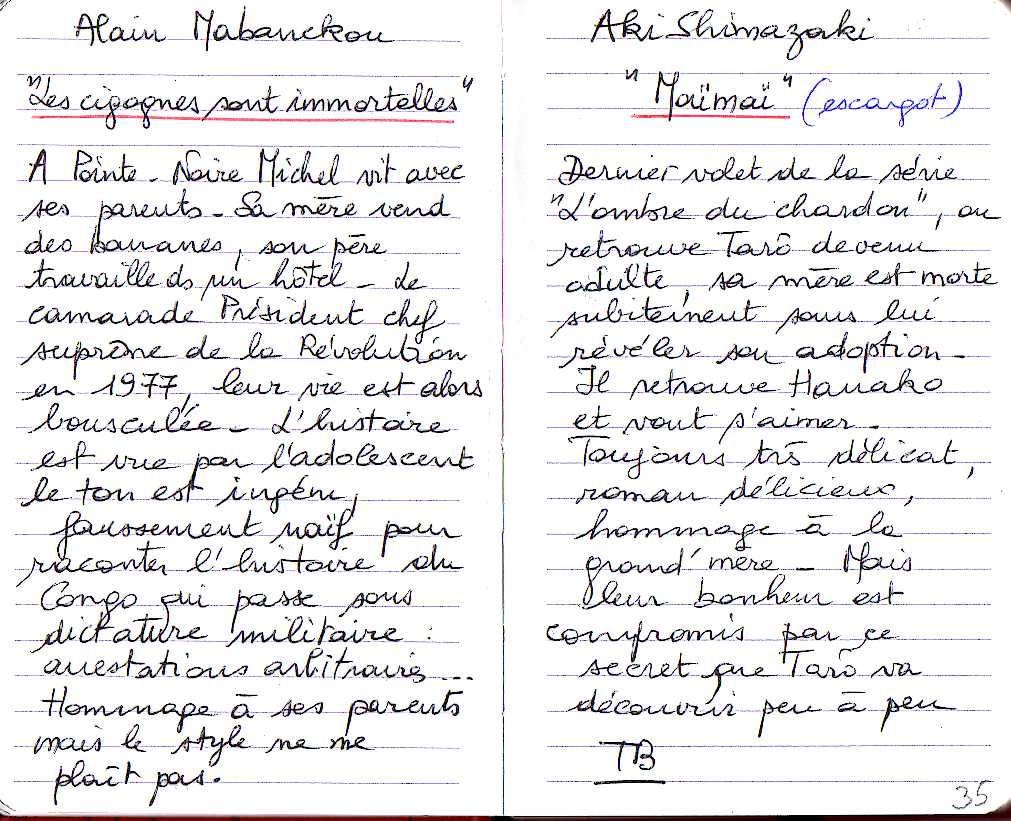 Alain Mabanckou
"Les cigognes sont immortelles"
A Pointe-Noire Michel vit avec
ses parents - Sa mère vend
des bananes, son père
travaille ds un hôtel - Le
camarade Président chef
suprême de la Révolution
en 1977, leur vie est alors
bousculée - L'histoire
est vue par l'adolescent
le ton est ingénu,
faussement naïf pour
raconter l'histoire du
Congo qui passe sous
dictature militaire :
arrestations arbitraires...
Hommage à ses parents
mais le style ne me
plaît pas.
Aki Shimazaki
"Maïmaï" (escargot)
Dernier volet de la série
"L'ombre du chardon", on
retrouve Tarô devenu
adulte, sa mère est morte
subitement sans lui
révéler son adoption -
Il retrouve Hanako
et vont s'aimer -
Toujours très délicat,
roman délicieux,
hommage à la
grand'mère - Mais
leur bonheur est
compromis par ce
secret que Tarô va
découvrir peu à peu
TB
35